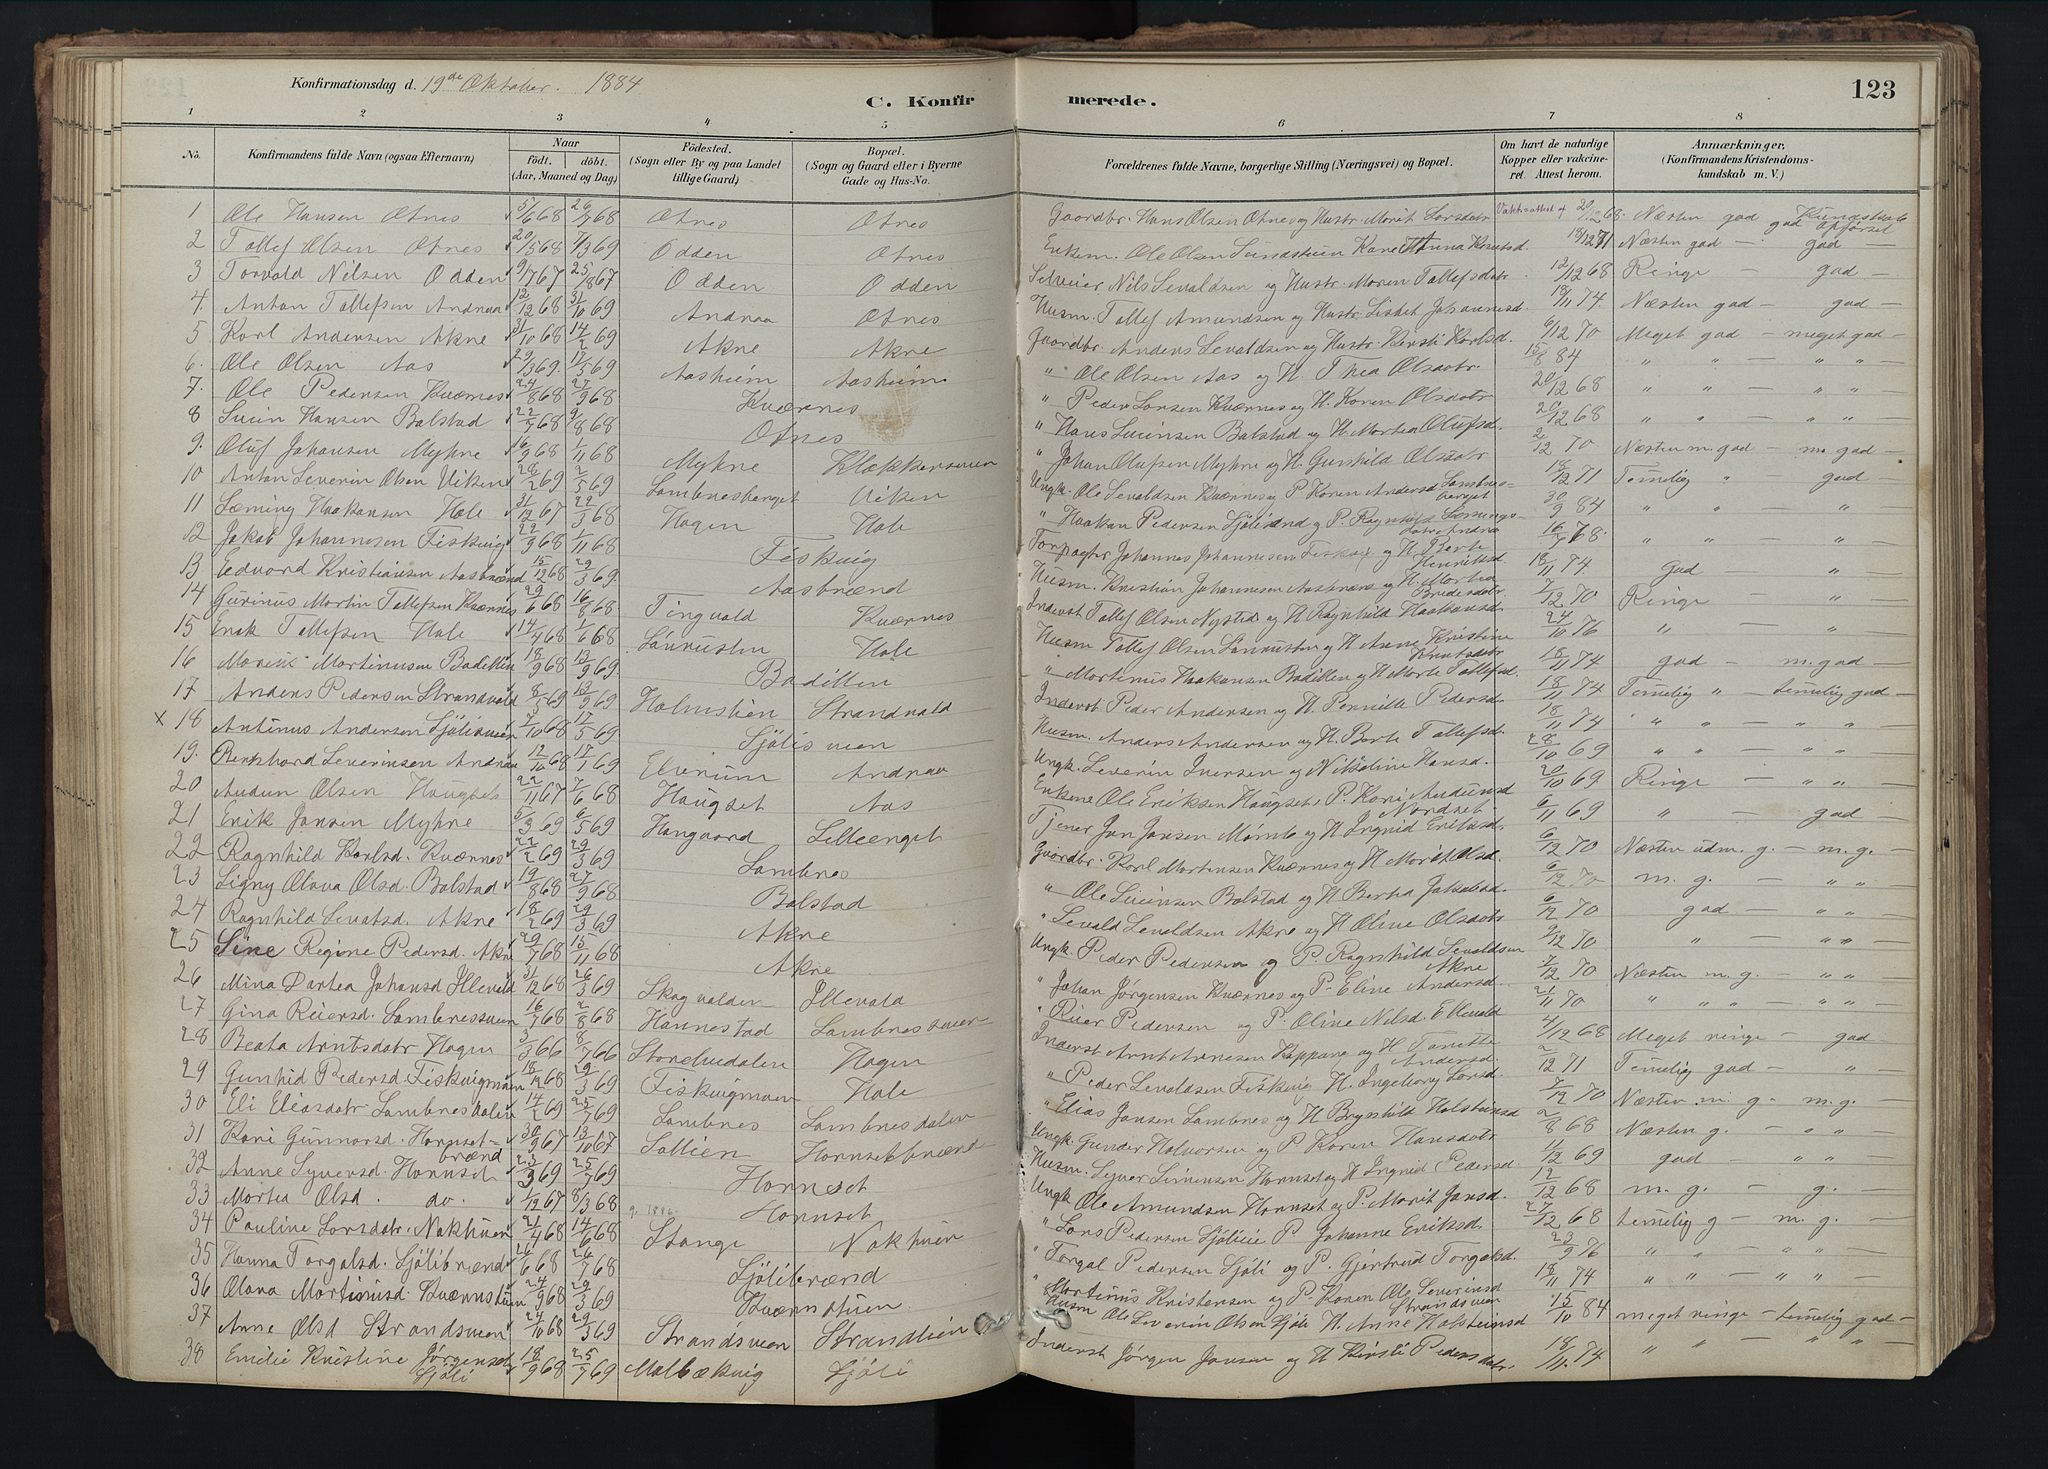 Konfirmationsdag d. 19de Oktober. 1884
C. Konfirmerede.
123
1 2 3 4 5 6 7 8
No. Konfirmandens fulde Navn (ogsaa Efternavn) Naar født. døbt. (Aar, Maaned og Dag) Fødested. (Sogn eller By og paa Landet tillige Gaard) Bopæl. (Sogn og Gaard eller i Byerne Gade og Hus-No. Forældrenes fulde Navne, borgerlige Stilling (Næringsvei) og Bopæl. Om havt de naturlige Kopper eller vakcineret. Attest herom. Anmærkninger. (Konfirmandens Kristendomskundskab m. V.)
1 Ole Hansen Otnes 5/6 68 26/7 68 Otnes Otnes Gaardbr. Hans Olsen Otnes og Hustr. Marit Larsdatr 68 Næsten god Kundskab god Opførsel
2 Tollef Olsen Otnes 20/5 68 7/3 69 Odden Otnes Enkem. Ole Olsen 18/12 71 Næsten god — god —
3 Torvald Nilsen Odden 9/7 67 25/8 67 Odden Odden Selveier Nils Sevaldsen og Hustr. Maren Tollefsdatr 12/12 68 Ringe — god —
4. Anton Tollefsen Andraa 12/12 68 31/10 69 Andraa Otnes Husm. Tollef Amundsen og Hustr. Lisbet Johannesd. 18/11 74. Næsten god — god —
5 Karl Andersen Akre 31/10 68 14/2 69 Akre Akre Gaardbr. Anders Sevaldsen og Hustr. Kersti Karlsd. 6/12 70 Meget god — meget god —
6. Ole Olsen Aas 29/3 69. 17/5 69 Aasheim Aasheim " Ole Olsen Aas og H. Thea Olsdatr. 15/8 84 " " — " "
7. Ole Pedersen Kværnes 24/8 68 27/9 68 Kværnes " Peder Larsen Kværnes og H. Karen Olsdatr 20/12 68 " " — " "
8 Svein Hansen Bolstad 22/7 68 9/8 68 Otnes " Hans Sveinsen Bolstad og H. Martea Olufsd. 20/12 68 " " — " "
9. Oluf Johansen Myhre 16/9 68 1/11 68 Myhre " Johan Olufsen Myhre og H. Gunhild Olsdatr 2/12 70 Næsten m. god — m. god —
10 Anton Severin Olsen Viken 28/2 69 2/5 69 Lombnesberget Viken Ungk. Ole Sevaldsen Kværnes og P. Karen Andersd Lombnesberget 18/12 71 Temelig " god —
11 Læming Haakansen Hole 31/12 67 22/3 68 Hagen Hole " Haakan Pedersen og P. Ragnhild 30/9 84 " " — " —
12 Jakob Johannesen Fiskvig 22/9 68 1/11 68 Fiskvig Johannes Johannesen Fiskvig og H. Berte Henriksd 16/7 68. " " — " —
13 Edvard Kristiansen Aasbrænd 15/12 68 29/3 69. Aasbrænd Husm. Kristian Johannesen Aasbrænd og H. Martea 18/11 74 god — " —
14 Gurinus Martin Tollefsen Kværnes 29/6 68 16/8 68 Tingvold Kværnes Inderst Tollef Olsen Nysted og H. Ragnhild Haakansd. 7/12 70 Ringe — "
15 Enok Tollefsen Hole 14/4 68 1/6 68 Hole Husm. Tollef Olsen og H. Anne Kristine Knutsdatr 24/10 76 " — " —
16 Marius Martinusen Badillen 18/9 68 13/9 69. Badillen " Martinus Haakansen Badillen og H. Marte Tollefsd. 18/11 74 god — m. god —
17 Anders Pedersen Strandvold 8/5 69 13/9 69 Holmstien Strandvold Inderst. Peder Andersen og H. Pernille Pedersd. 18/11 74 Temelig " — temelig god —
x 18 Antinus Andersen Sjølisveen 7/10 68 17/5 69 Sjølisveen Husm. Anders Andersen og H. Berte Tollefsd. 18/11 74 " " — " " —
19. Severinsen Andraa 12/10 68 17/1 69 Elverum Andraa Ungk. Severin Iversen og Nilsoline Hansd. 28/10 69 " " — " " —
20 Audun Olsen Haugset 22/11 67 7/6 68 Haugset Aas Enkem. Ole Eriksen Haugset, P. Kari Audunsd Nordset 20/10 69 Ringe — " " —
21 Erik Jansen Myhre 5/3 69 6/5 69 Haugaard Lilleenget Tjener Jan Jansen og H. Ingrid Eriksd. 6/11 69 " — god —
22 Ragnhild Karlsd. Kværnes 22/2 69 29/3 69 Lombnes Gaardbr. Karl Martensen Kværnes og H Marit Olsd. 6/12 70 Næsten udm. g. — m. g. —
23 Signy Olava Olsd. Bolstad 19/8 68 27/9 68 Bolstad " Ole Sveinsen Bolstad og H Berthea Jakobsd. 6/12 70 m. g. — " " —
24 Ragnhild Sevalsd. Akre 18/2 69 29/3 69 Akre " Sevald Sevaldsen Akre og H Oline Olsdatr 6/12 70 god — " " —
25 Sine Regine Pedersd. Akre 29/7 68 15/11 68 Akre Ungk. Peder Pedersen og P. Ragnhild Sevaldsen Akre 9/12 70 " — " " —
26 Mina Dortea Johansd Illevold 31/12 68 26/3 69 Skogvolden Illevold " Johan Jørgensen Kværnes og P. Eline Andersd. 7/12 70 Næsten m. g. — " " —
27 Gina Reiersd. Lombnessveen 16/7 68 2/8 68 Hannestad Lombnessveen " Reier Pedersen og P. Oline Nilsd. 21/11 70 " " " — " " —
28 Beata Arntsdatr Hagen 3/3 66 8/7 66 Storeluedalen Hagen Inderst Arnt Arnesen Koppang og H Tonette Andersd. 4/12 68 Meget ringe — god
29 Gunhild Pedersd. Fiskvigmoen 18/12 68 29/3 69 Fiskvigmoen Hole " Peder Sevaldsen Fiskvig H. Ingeborg Larsd. 2/12 71 Temelig god — " —
30 Eli Eliasdatr Lombnesdalen 14/2 69 25/7 69 Lombnes Lombnesdalen " Elias Jansen Lombnes og H Brynhild Halsteinsd 7/12 70 Næsten m. g. — m. g. —
31 Kari Gunnarsd. Hornsetbrænd 30/9 67 13/10 67 Sollien Hornsetbrænd Ungk. Gunder Halvorsen og P Karen Hansdatr 2/8 68 Næsten g. — " " —
32 Anne Syversd. Hornset 23/3 69 25/7 69 Hornset Husm. Syver Simensen Hornset og H Ingrid Pedersd. 1/12 69 god — " " —
33 Martea Olsd. do. 1/12 67 8/3 68 Hornset Ungk Ole Amundsen Hornset og P. Marit Jansd. 12/12 68 m. g. — g. —
34 Pauline Larsdatr. Nokhuen 21/4 68 14/6 68 Stange Nokhuen " Lars Pedersen Sjølie P Johanne Eriksd. 27/12 68 temelig g — m. g. —
35 Hanna Torgalsd. Sjølibrænd 26/6 68 26/7 68 Sjølibrænd " Torgal Pedersen Sjøli og P. Gjertrud Torgalsd. 23/9 76 " " — " " —
36 Olava Martinusd. Kværnstuen 24/9 68 29/3 69 Kværnstuen " Martinus Kristensen og P. Karen Ole Severinsd Strandsveen 18/11 74 " " — " " —
37 Anne Olsd Strandsveen 24/10 68 29/3 69 Strandsveen Strandlien Husm Ole Severin Olsen Sjøli H. Anne Halsteinsd 15/10 84 meget ringe — temelig god —
38 Emilie Kristine Jørgensd Sjöli 18/9 68 25/7 69 Malbækvig Sjöli Inderst Jørgen Jansen og H Kirsti Pedersdatr. 18/11. 74 " " — " "